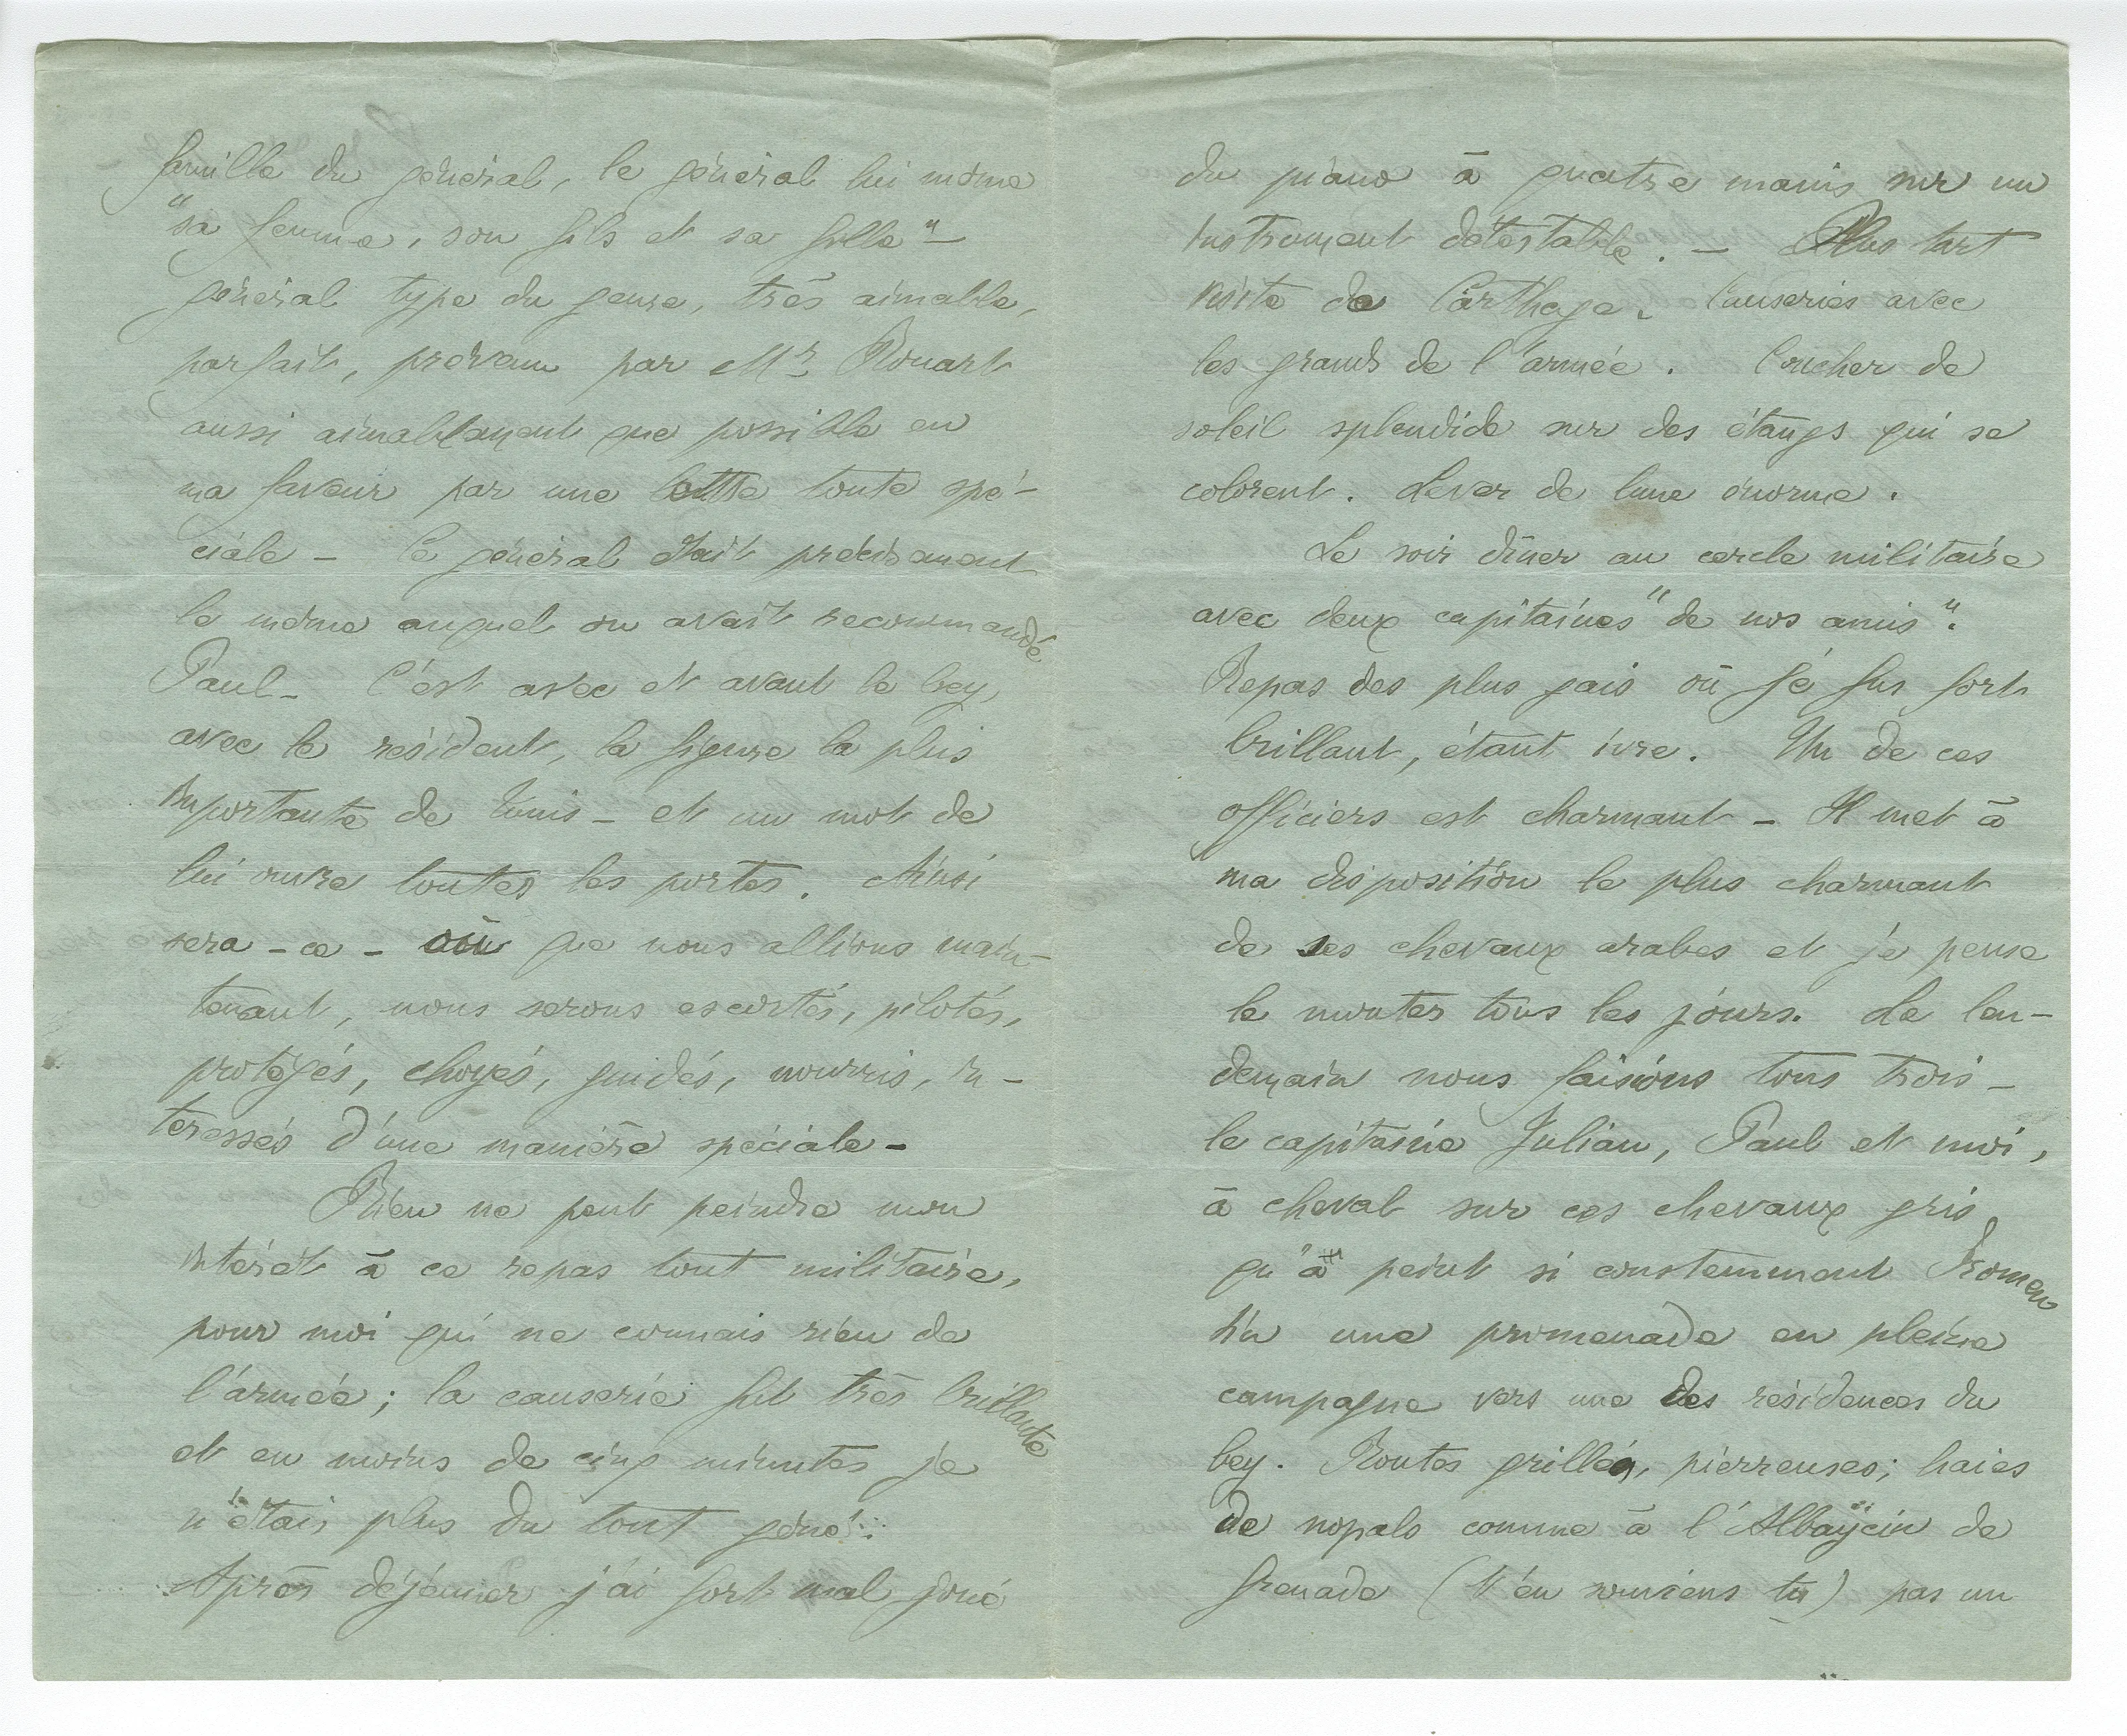 famille du général, le général lui même
"sa femme, son fils et sa fille" —
général type du genre, très aimable,
parfait, prévenu par Mr Rouart
aussi aimablement que possible en
ma faveur par une lettre toute spé-
ciale — Ce général était précisément
le même auquel on avait recommandé
Paul — C'est avec et avant le bey,
avec le résident, la figure la plus
importante de Tunis — et un mot de
lui ouvre toutes les portes. Ainsi
sera-ce — où que nous allions main-
tenant, nous serons escortés, pilotés,
protégés, choyés, guidés, nourris, in-
téressés d'une manière spéciale —
Rien ne peut peindre mon
intérêt à ce repas tout militaire,
pour moi qui ne connais rien de
l'armée ; la causerie fut très brillante
et en moins de cinq minutes je
n'étais plus du tout gêné...
Après déjeuner j'ai fort mal joué
du piano à quatre mains sur un
instrument détestable. — Plus tart
visite de Carthage. Causeries avec
les grands de l'armée. Coucher de
soleil splendide sur des étangs qui se
colorent. Lever de lune énorme.
Le soir dîner au cercle militaire
avec deux capitaines "de nos amis".
Repas des plus gais où je fus fort
brillant, étant ivre. Un de ces
officiers est charmant — Il met à
ma disposition le plus charmant
de ses chevaux arabes et je pense
le monter tous les jours. Le len-
demain nous faisions tous trois —
le capitaine Julian, Paul et moi,
à cheval sur ces chevaux gris
qu'a peint si constemment Fromen
tin une promenade en pleine
campagne vers une des résidences du
bey. Routes grillées, pierreuses ; haies
de nopals comme à l'Albaÿcin de
Grenade (t'en souviens tu) pas un